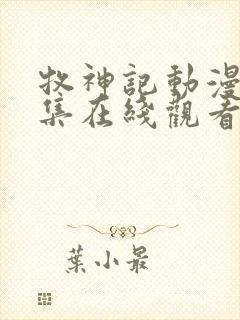 牧神記動漫
集在綫觀看
葉小最